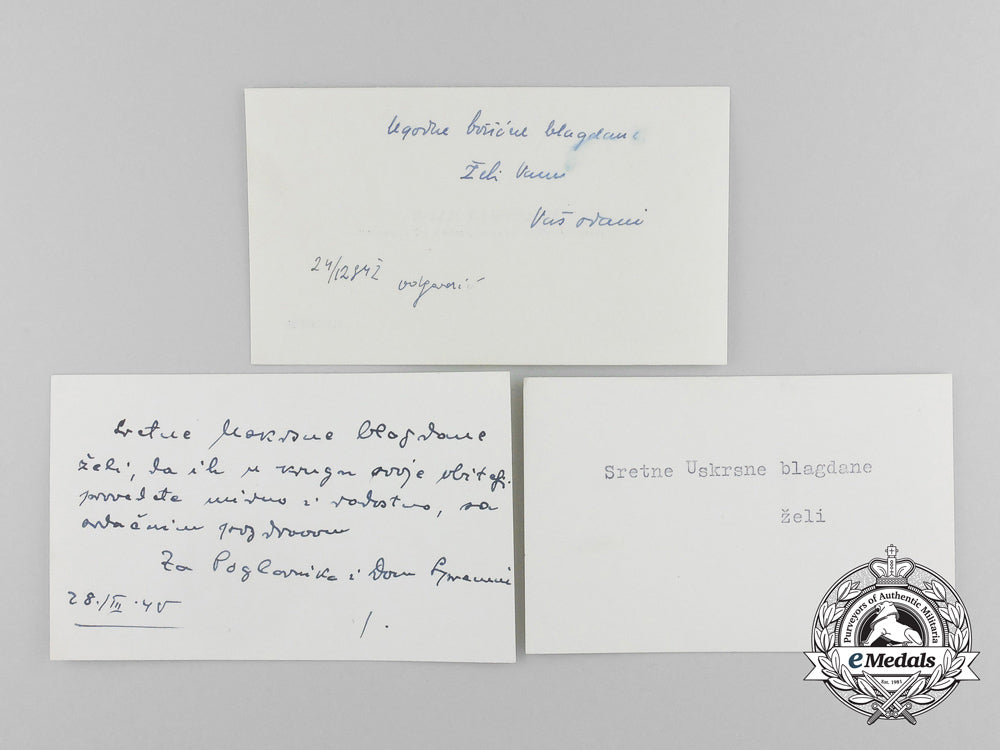 Ugodne božićne blagdane
Želi Vam
Vaš odani
24/12942
Sretne Uskrsne blagdane
želi, da ih u krugu svoje obitelji
provedete mirno i radostno, sa
srdačnim pozdravom
Za Poglavnika i Dom Spremni
28./III.45
Sretne Uskrsne blagdane
želi
Purveyors of Authentic Militaria
eMedals
Est. 1981